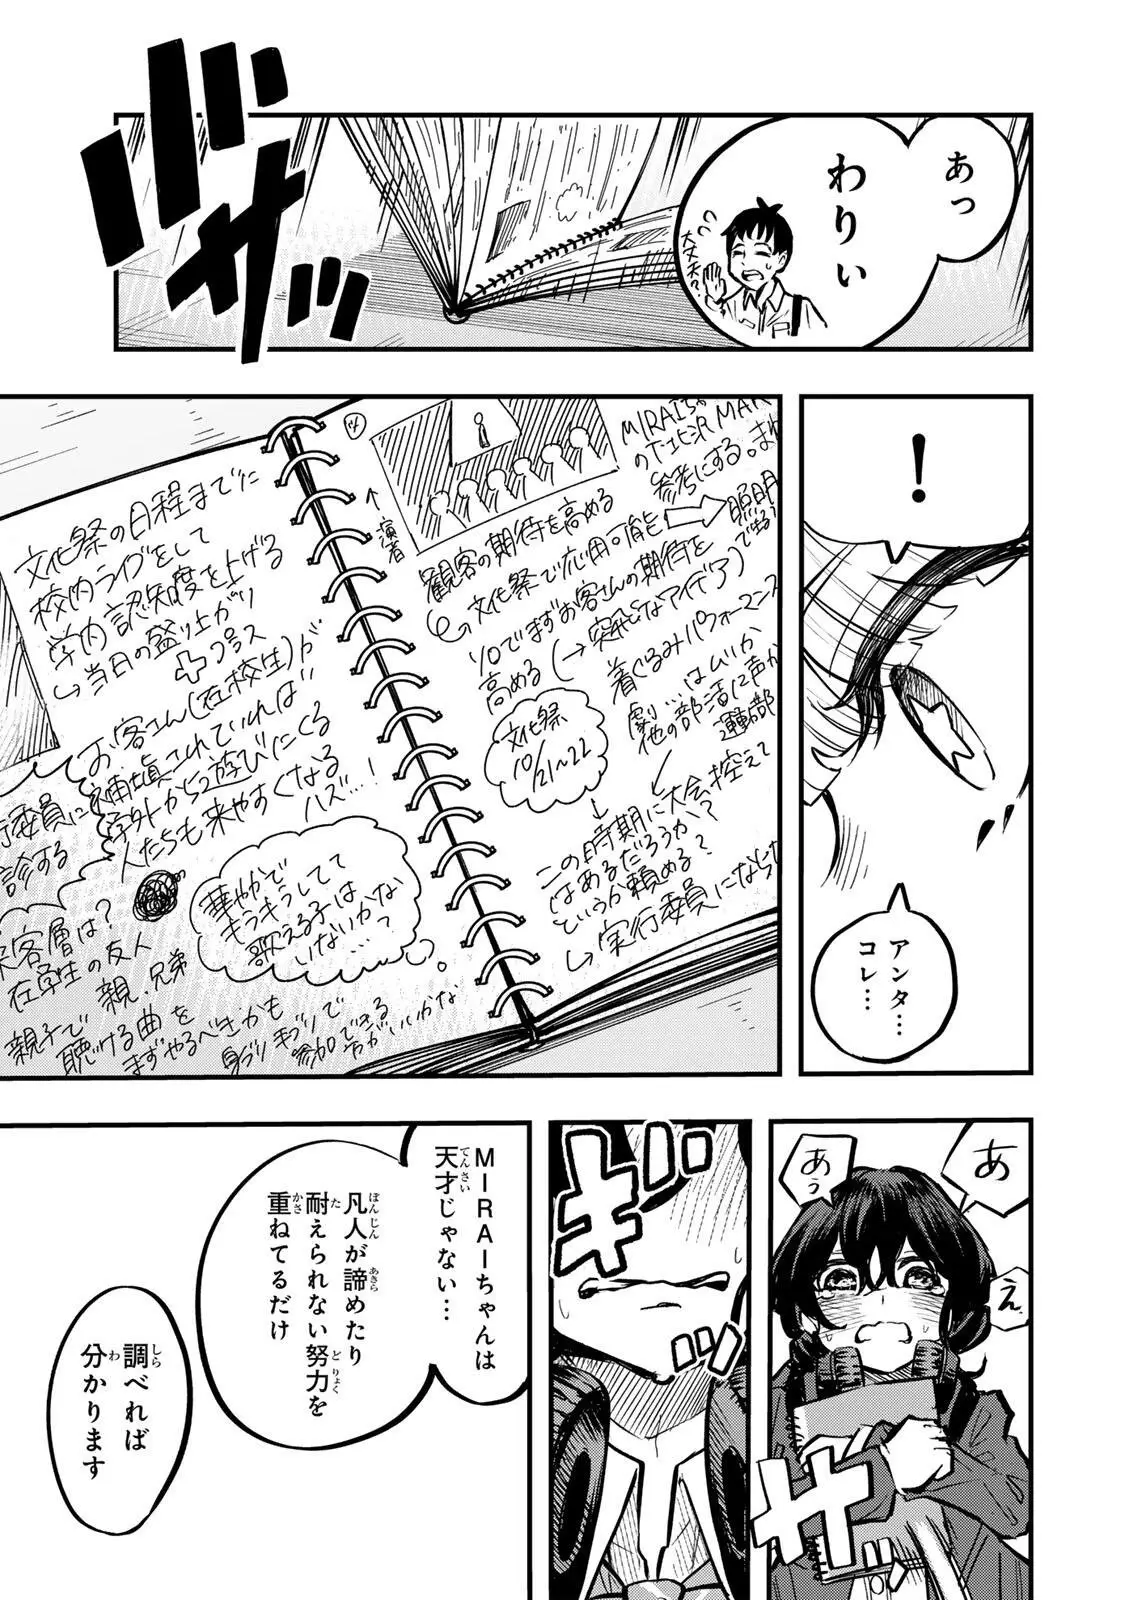 あっ
わりぃ
大丈夫?
バサッ
!
アンタ…
コレ…
MIRAIちゃ
の下北沢MAR
参考にする。また
演者
観客の期待を高める
文化祭で応用可能
照明
10でまずお客さんの期待を
高める(→突飛なアイデア)
着ぐるみパフォーマンス
劇…はムリか
他の部活に声か
運動部
文化祭
10/21~22
この時期に大会控えて
はあるだろうか?
というか頼める?
実行委員にならな
文化祭の日程までに
校内ライブをして
学内認知度を上げる
当日の盛り上がり
プラス
お客さん(在校生)が
補填されていれば
学外から遊びにくる
人たちも来やすくなる
ハズ…!
行委員に
診する
華やかで
キラキラしてて
歌える子は
いないかな
…?
客層は?
在学生の友人
親、兄弟
親子で
聴ける曲を
まずやるべきかも
身ブリ手ブリで
参加できる
方がいいかな
あ
あぅ
え
ギュッ
MIRAIちゃんは
天才じゃない…
てんさい
凡人が諦めたり
ぼんじん
あきら
耐えられない努力を
た
どりょく
重ねてるだけ
かさ
調べれば
しら
分かります
わ